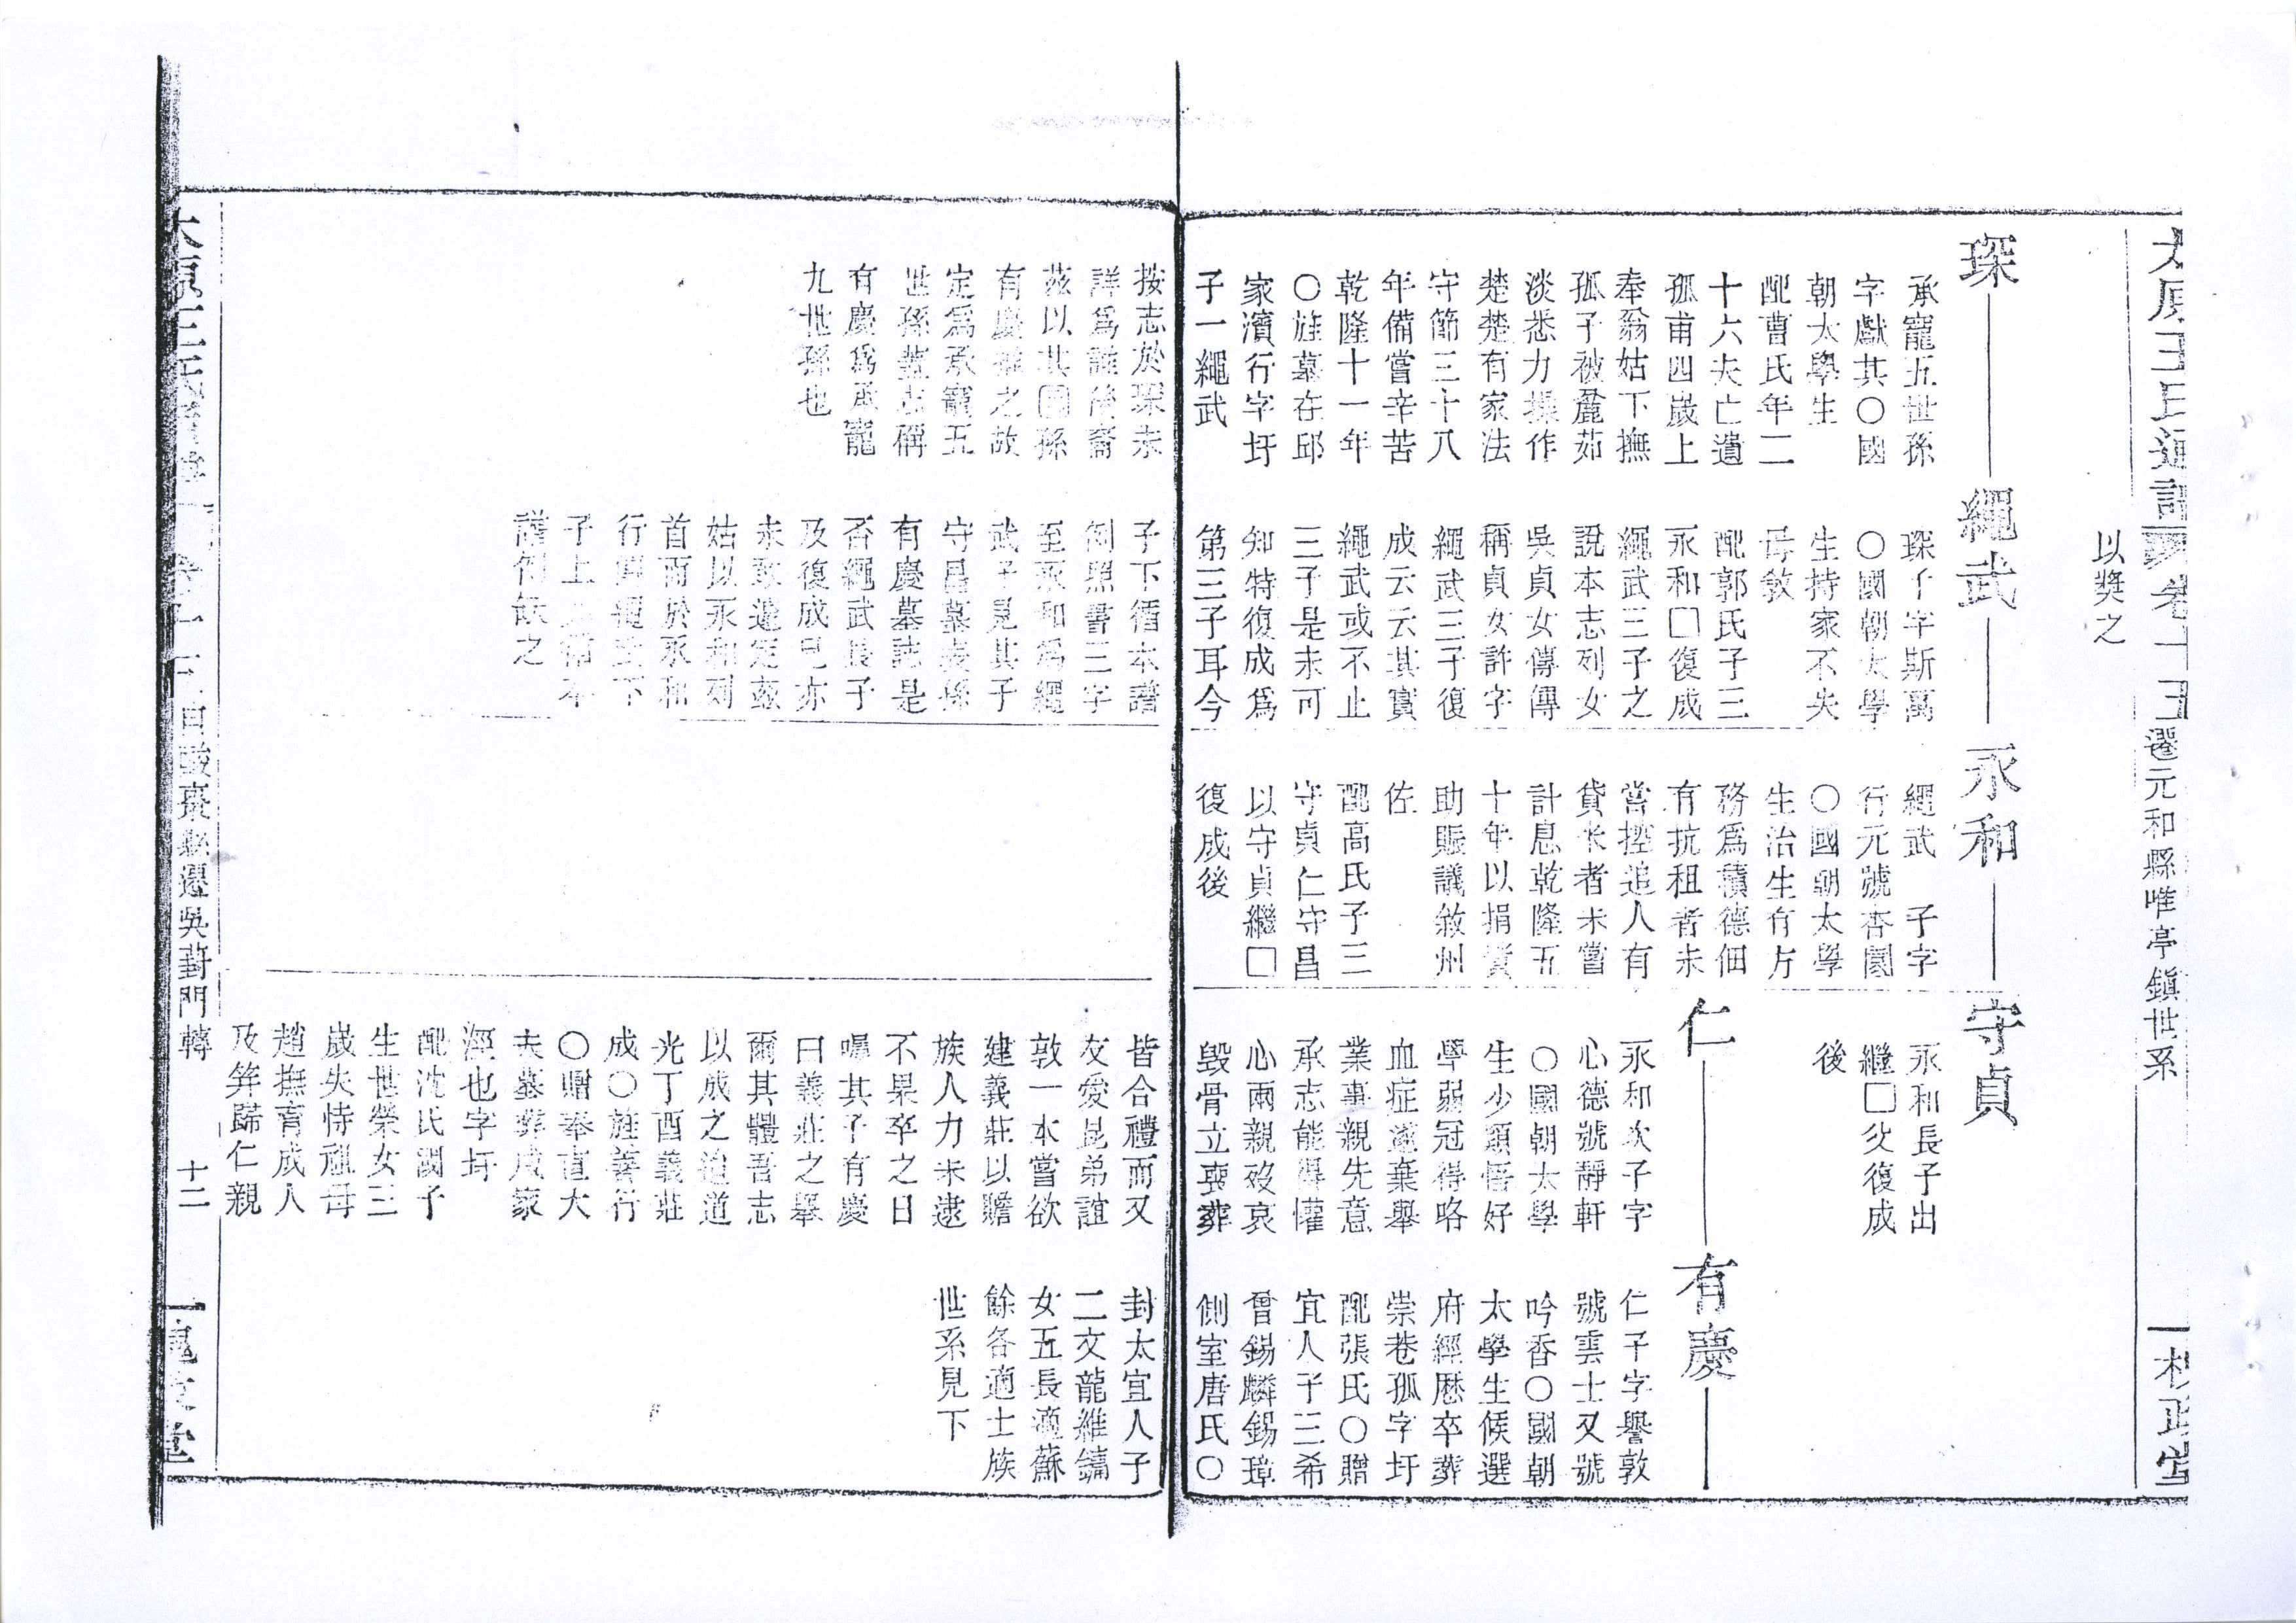 太原王氏通譜
遷元和縣唯亭鎮世系
以獎之
琛
繩武
永和
守貞
承寵五世孫
字獻其〇國
朝太學生
配曹氏年二
十六夫亡遺
孤甫四歲上
奉翁姑下撫
孤子被麤茹
淡悉力操作
楚楚有家法
守節三十八
年備嘗辛苦
乾隆十一年
〇旌墓在邱
家濱行字圩
子一繩武
琛子字斯萬
〇國朝太學
生持家不失
母教
配郭氏子三
永和□復成
繩武三子之
說本志列女
吳貞女傳傳
稱貞女許字
繩武三子復
成云云其實
繩武或不止
三子是未可
知特復成爲
第三子耳今
繩武 子字
行元號杏園
〇國朝太學
生治生有方
務爲積德佃
有抗租者未
嘗控追人有
貸米者未嘗
計息乾隆五
十年以捐貲
助賑議敘州
佐
配高氏子三
守貞仁守昌
以守貞繼□
復成後
永和長子出
繼□父復成
後
仁
有慶
永和次子字
心德號靜軒
〇國朝太學
生少穎悟好
學弱冠得咯
血症遂棄舉
業事親先意
承志能得懽
心兩親歿哀
毀骨立喪葬
仁子字譽敦
號雲士又號
吟香〇國朝
太學生候選
府經歷卒葬
崇巷孤字圩
配張氏〇贈
宜人子三希
曾錫麟錫璋
側室唐氏〇
按志於琛未
詳爲誰後裔
茲以其□孫
有慶推之故
定爲承寵五
世孫蓋志稱
有慶爲承寵
九世孫也
子下循本譜
例照書三字
至永和爲繩
武子見其子
守昌墓表孫
有慶墓誌是
否繩武長子
及復成兄亦
未敢遽定茲
姑以永和列
首而於永和
行與繩武下
子上
譜例缺之
皆合禮而又
友愛昆弟誼
敦一本嘗欲
建義莊以贍
族人力未逮
不果卒之日
囑其子有慶
曰義莊之舉
爾其體吾志
以成之洎道
光丁酉義莊
成〇旌善行
〇贈奉直大
夫墓葬戍家
涇也字圩
配沈氏潤子
生世榮女三
歲失恃祖母
趙撫育成人
及笄歸仁親
封太宜人子
二文龍維鏞
女五長適蘇
餘各適士族
世系見下
自酸棗縣遷吳葑門轉
十二